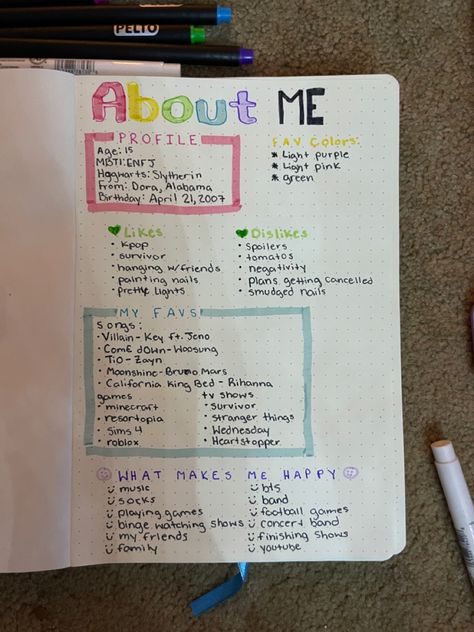 PELTO
About ME
PROFILE
Age: 15
MBTI: ENFJ
Hogwarts: Slytherin
From: Dora, Alabama
Birthday: April 21, 2007
FAV Colors:
* Light purple
* Light pink
* green
Likes
• Kpop
• survivor
• hanging w/friends
• painting nails
• pretty lights
Dislikes
• spoilers
• tomatos
• negativity
• plans getting cancelled
• smudged nails
MY FAVS
Songs:
• Villain - Key ft. Jeno
• Come down - Woosung
• TiO - Zayn
• Moonshine - Bruno Mars
• California King Bed - Rihanna
games
• minecraft
• resortopia
• Sims 4
• roblox
tv shows
• Survivor
• stranger things
• Wednesday
• Heartstopper
WHAT MAKES ME HAPPY
music
socks
playing games
binge watching shows
my friends
family
bts
band
football games
concert band
finishing shows
youtube